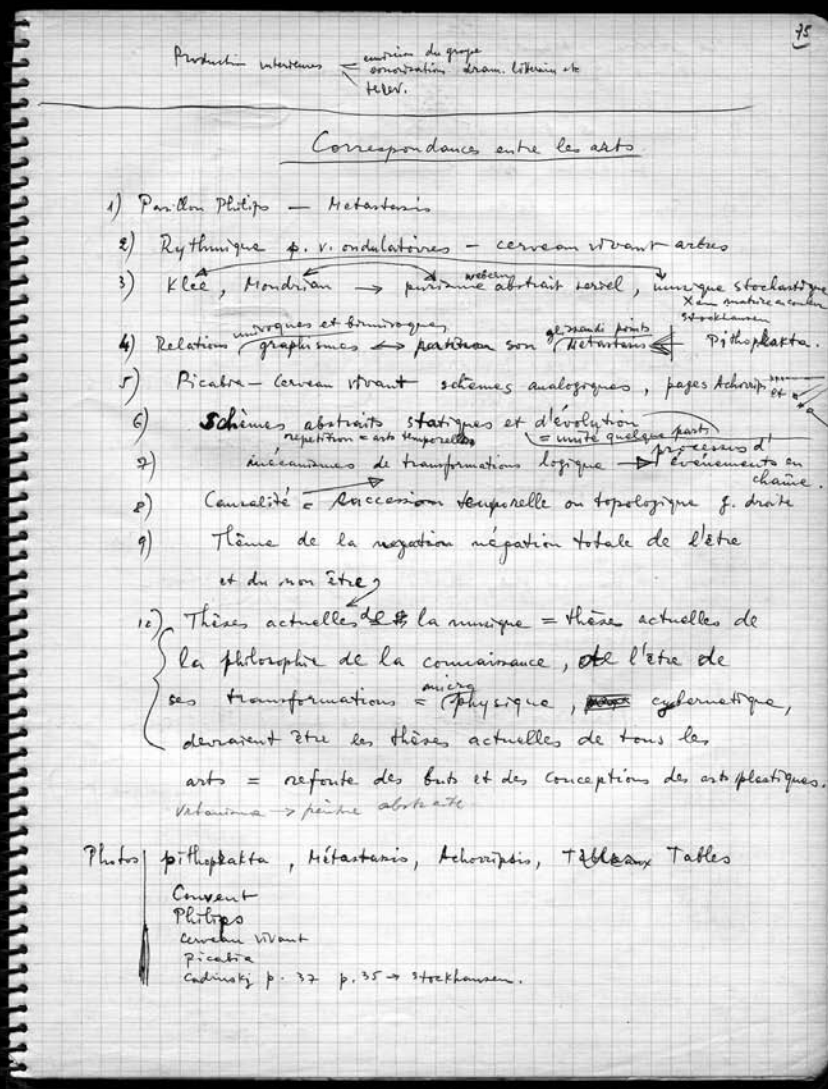 75
Production intérieures émission du groupe
sonorisation dram. littéraire etc
télév.
Correspondances entre les arts
1) Pavillon Philips — Metastasis
2) Rythmique p. v. ondulatoires - cerveau vivant arbres
webern
3) Klee, Mondrian → purisme abstrait seriel, musique stochastique
stockhausen
univoques et biunivoques glissandi points
4) Relations graphismes ↔ partition son Metastasis Pithoprakta.
5) Picabia - Cerveau vivant schèmes analogiques, pages Achorrip. et
6) Schèmes abstraits statiques et d'évolution
repetition = arts temporelles = unité quelque parts
7) mécanismes de transformations logique → processus d'événements en chaîne.
8) Causalité = succession temporelle ou topologique g. droite
9) Thème de la négation totale de l'être
et du non être,
10) Thèses actuelles de la musique = thèses actuelles de
la philosophie de la connaissance, de l'être de
ses transformations = micro physique, cybernetique,
devraient être les thèses actuelles de tous les
arts = refonte des buts et des conceptions des arts plastiques.
Urbanisme → peintre abstraite
Photos pithoprakta, Métastasis, Achorripsis, Tables
Couvent
Philips
cerveau vivant
Picabia
Cadinskj p. 37 p. 35 → stockhausen.